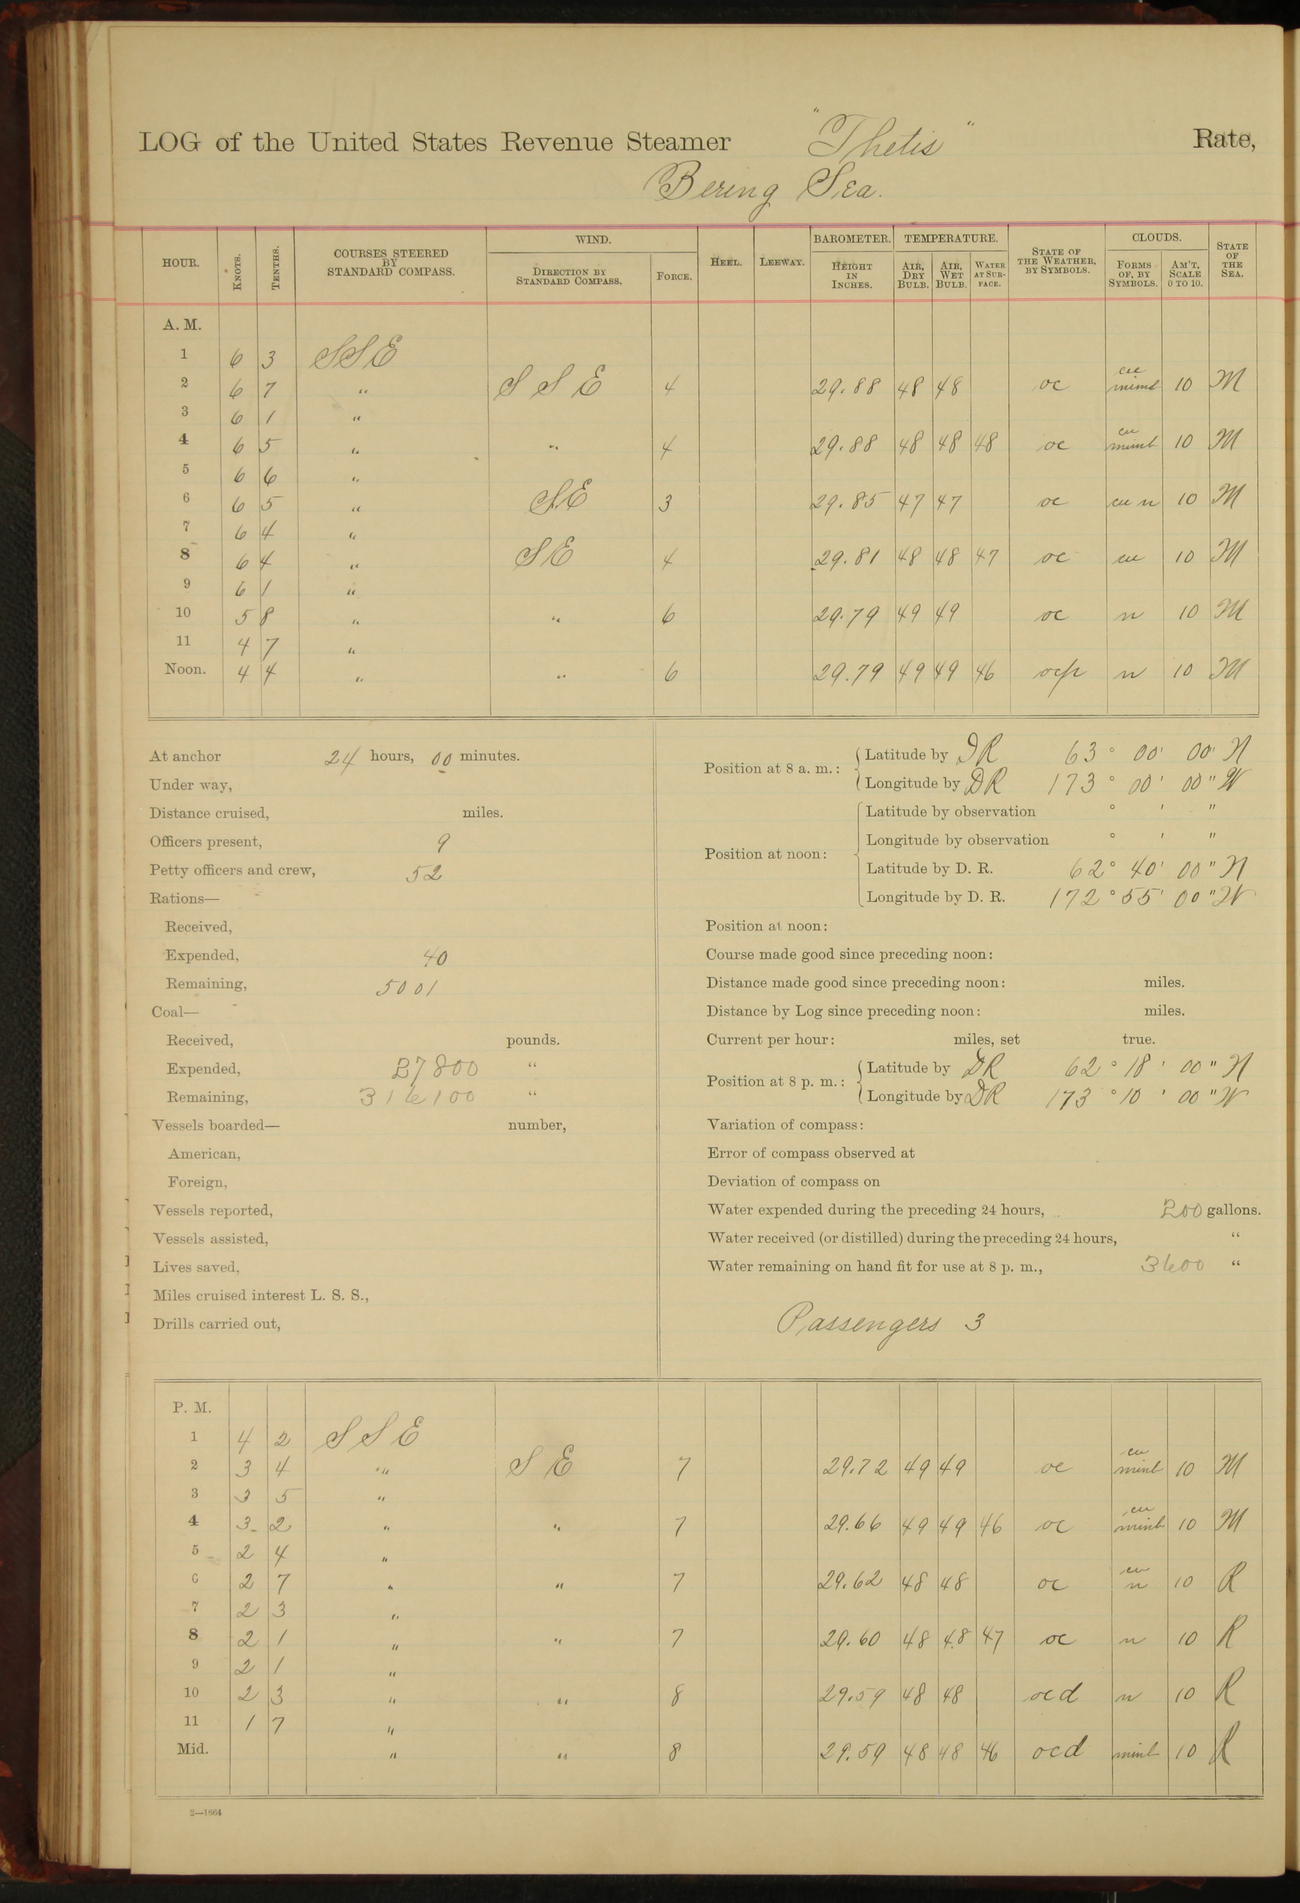 LOG of the United States Revenue Steamer "Thetis" Rate,
Bering Sea.
HOUR. KNOTS. TENTHS. COURSES STEERED BY STANDARD COMPASS. WIND. DIRECTION BY STANDARD COMPASS. FORCE. HEEL. LEEWAY. BAROMETER. HEIGHT IN INCHES. TEMPERATURE. AIR, DRY BULB. AIR, WET BULB. WATER AT SURFACE. STATE OF THE WEATHER, BY SYMBOLS. CLOUDS. FORMS OF, BY SYMBOLS. AM'T, SCALE 0 TO 10. STATE OF THE SEA.
A. M.
1 6 3 SSE
2 6 7 " S S E 4 29.88 48 48 oc 10 M
3 6 1 "
4 6 5 " " 4 29.88 48 48 48 oc cu 10 M
5 6 6 "
6 6 5 " SE 3 29.85 47 47 oc cu n 10 M
7 6 4 "
8 6 4 " SE 4 29.81 48 48 47 oc cu 10 M
9 6 1 "
10 5 8 " " 6 29.79 49 49 oc n 10 M
11 4 7 "
Noon. 4 4 " " 6 29.79 49 49 46 ocp n 10 M
At anchor 24 hours, 00 minutes.
Under way,
Distance cruised, miles.
Officers present, 9
Petty officers and crew, 52
Rations—
Received,
Expended, 40
Remaining, 5001
Coal—
Received, pounds.
Expended, 27800 "
Remaining, 316100 "
Vessels boarded— number,
American,
Foreign,
Vessels reported,
Vessels assisted,
Lives saved,
Miles cruised interest L. S. S.,
Drills carried out,
Position at 8 a. m.:
Latitude by DR 63° 00' 00" N
Longitude by DR 173° 00' 00" W
Position at noon:
Latitude by observation ° ' "
Longitude by observation ° ' "
Latitude by D. R. 62° 40' 00" N
Longitude by D. R. 172° 55' 00" W
Position at noon:
Course made good since preceding noon:
Distance made good since preceding noon: miles.
Distance by Log since preceding noon: miles.
Current per hour: miles, set true.
Position at 8 p. m.:
Latitude by DR 62° 18' 00" N
Longitude by DR 173° 10' 00" W
Variation of compass:
Error of compass observed at
Deviation of compass on
Water expended during the preceding 24 hours, 200 gallons.
Water received (or distilled) during the preceding 24 hours, "
Water remaining on hand fit for use at 8 p. m., 3600 "
Passengers 3
P. M.
1 4 2 S S E
2 3 4 " S E 7 29.72 49 49 oc cu 10 M
3 3 5 "
4 3 2 " " 7 29.66 49 49 46 oc cu 10 M
5 2 4 "
6 2 7 " " 7 29.62 48 48 oc cu n 10 R
7 2 3 "
8 2 1 " " 7 29.60 48 48 47 oc n 10 R
9 2 1 "
10 2 3 " " 8 29.59 48 48 ocd n 10 R
11 1 7 "
Mid. " " 8 29.59 48 48 46 ocd 10 R
2—1664